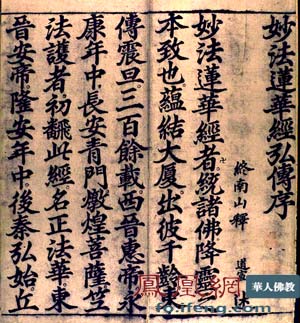 妙法蓮華經弘傳序
終南山釋 道宣 述
卍
妙法蓮華經者統諸佛降靈之
本致也蘊結大厦出彼千齡東
傳震旦三百餘載西晉惠帝永
康年中長安青門燉煌菩薩竺
法護者初翻此經名正法華東
晉安帝隆安年中後秦弘始丘
鳳凰網
華人佛教
fo.ifeng.com